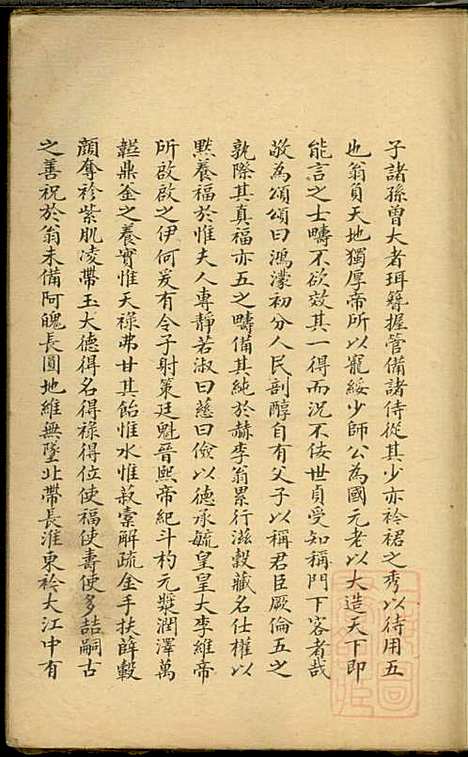 子諸孫曽大者珥簪握管備諸侍從其少亦衿裾之秀以待用五
也翁負天地獨厚帝所以寵綏少師公為國元老以大造天下即
能言之士疇不欲效其一得而況不佞世貞受知稱門下客者哉
敬為頌頌曰鴻濛初分人民剖醇自有父子以稱君臣厥倫五之
孰際其真福亦五之疇備其純於赫李翁累行滋穀藏名仕權以
黙養福於惟夫人專靜若淑曰慈曰儉以德承毓皇皇大李維帝
所啟啟之伊何爰有令子射策廷魁晉熙帝紀斗杓元漿潤澤萬
甕鼎釜之養實惟天祿弗甘其飴惟水惟菽橐解疏金手扶
顏奪衫紫肌凌帶玉大德得名得祿得位使福使壽使多詰嗣古
之善祝於翁未備阿䰟長圓地維無墜北帶長淮東衿大江中有